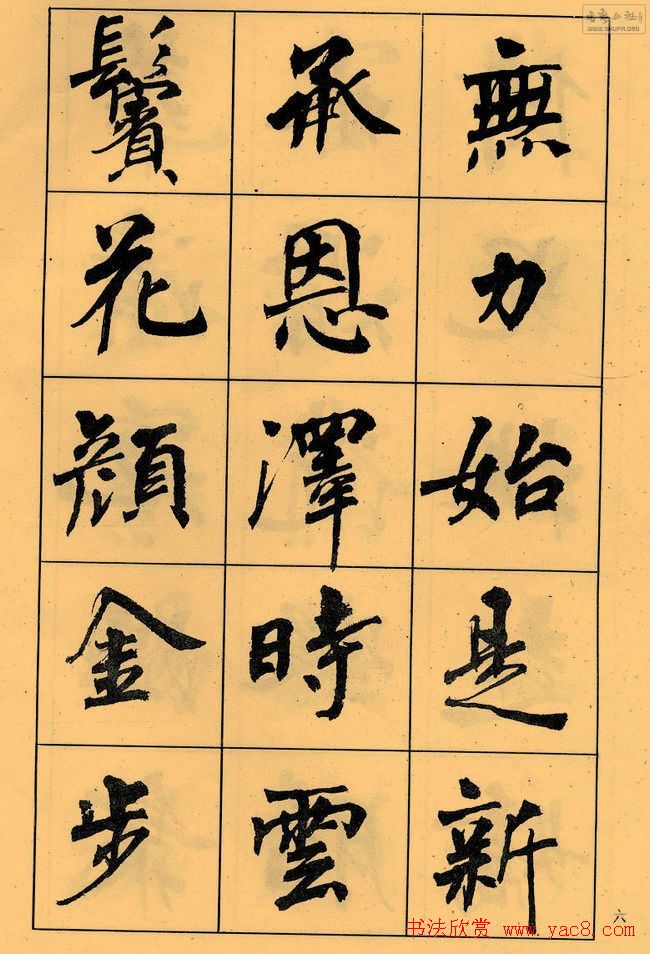 無力始是新
承恩澤時雲
鬢花顏金步
六
书法欣赏 www.yac8.com
WWW.SHUFA.ORG